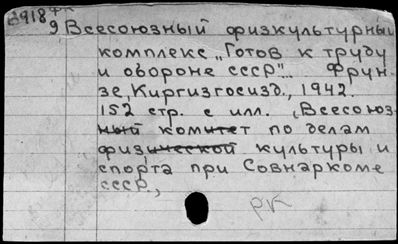 д918 фк
9 Всесоюзный физкультурный
комплекс „Готов к труду
и обороне СССР"... Фрун-
зе, Киргизгосизд., 1942.
152 стр. с илл. (Всесоюз-
ный комитет по делам
физической культуры и
спорта при Совнаркоме
СССР,
рк